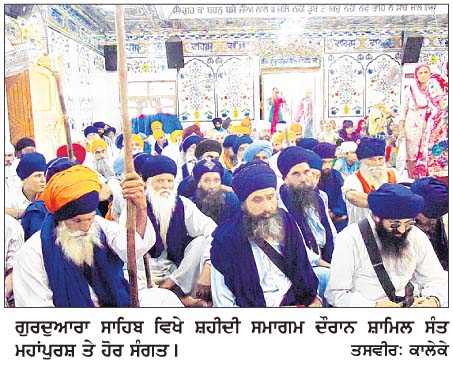 ਗੁਰਦੁਆਰਾ ਸਾਹਿਬ ਵਿਖੇ ਸ਼ਹੀਦੀ ਸਮਾਗਮ ਦੌਰਾਨ ਸ਼ਾਮਿਲ ਸੰਤ
ਮਹਾਂਪੁਰਸ਼ ਤੇ ਹੋਰ ਸੰਗਤ। ਤਸਵੀਰ: ਕਾਲੇਕੇ